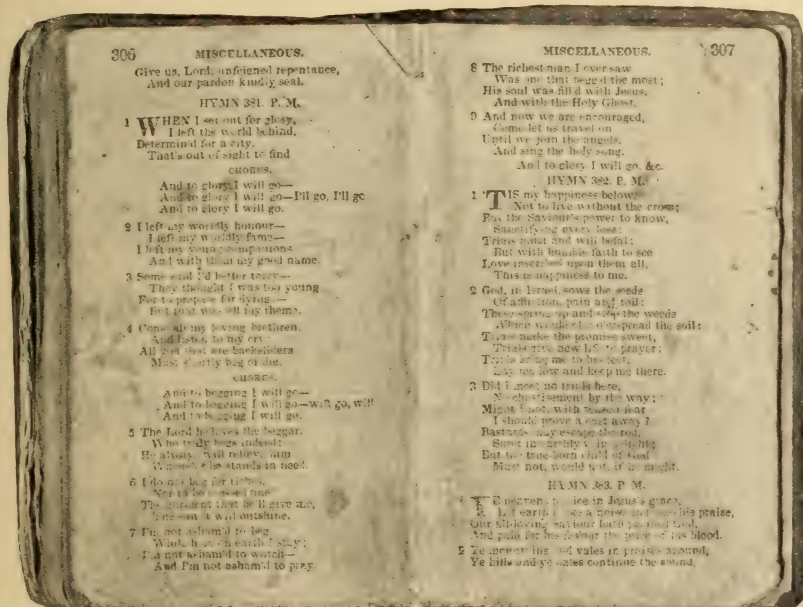 306
MISCELLANEOUS.
Give us, Lord, unfeigned repentance,
And our pardon kindly seal.
HYMN 381. P. M.
1 WHEN I set out for glory,
I left the world behind,
Determin'd for a city,
That's out of sight to find
CHORUS.
And to glory I will go—
And to glory I will go—I'll go, I'll go
And to glory I will go.
2 I left my worldly honour—
I left my worldly fame—
I left my young companions
And with them my good name.
3 Some said I'd better tarry—
They thought I was too young
For to prepare for dying—
But that was all my theme.
4 Come all my loving brethren,
And listen to my cry
All you that are backsliders
Must shortly beg or die.
CHORUS.
And to begging I will go—
And to begging I will go—will go, will
And to begging I will go.
5 The Lord he loves the beggar.
Who truly begs indeed;
He always will relieve him
Whenever he stands in need.
6 I do not beg for riches,
Nor to be
The garment that he'll give me,
The sun it will outshine.
7 I'm not asham'd to beg
While here on earth I stay;
I'm not asham'd to watch—
And I'm not asham'd to pray.
MISCELLANEOUS.
307
8 The richest man I ever saw
Was one that begg'd the most;
His soul was fill'd with Jesus,
And with the Holy Ghost.
9 And now we are encouraged,
Come let us travel on
Until we join the angels,
And sing the holy song.
And to glory I will go, &c.
HYMN 382. P. M.
1 'TIS my happiness below,
Not to live without the cross;
But the Saviour's power to know,
Sanctifying every loss:
Trials must and will befal;
But with humble faith to see
Love inscribed upon them all,
This is happiness to me.
2 God, in Israel, sows the seeds
Of affliction, pain and toil;
These spring up and stop the weeds
Which would else overspread the soil:
Trials make the promise sweet,
Trials give new life to prayer;
Trials bring me to his feet,
Lay me low and keep me there.
3 Did I meet no trials here,
No chastisement by the way;
Might I not, with reason fear
I should prove a cast away?
Bastards may escape the rod,
Sunk in earthly vain delight;
But the true-born child of God
Must not, would not, if he might.
HYMN 383. P. M.
rejoice in Jesus's grace,
Let earth make a noise and his praise,
Our all-loving Saviour hath
And paid for his favour the price of his blood.
2 Ye mountains and vales in praises abound,
Ye hills and ye dales continue the sound,